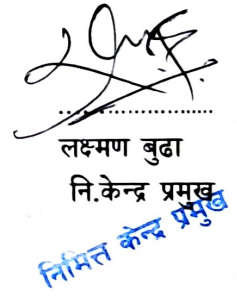 लक्ष्मण बुढा
नि.केन्द्र प्रमुख
निमित्त केन्द्र प्रमुख